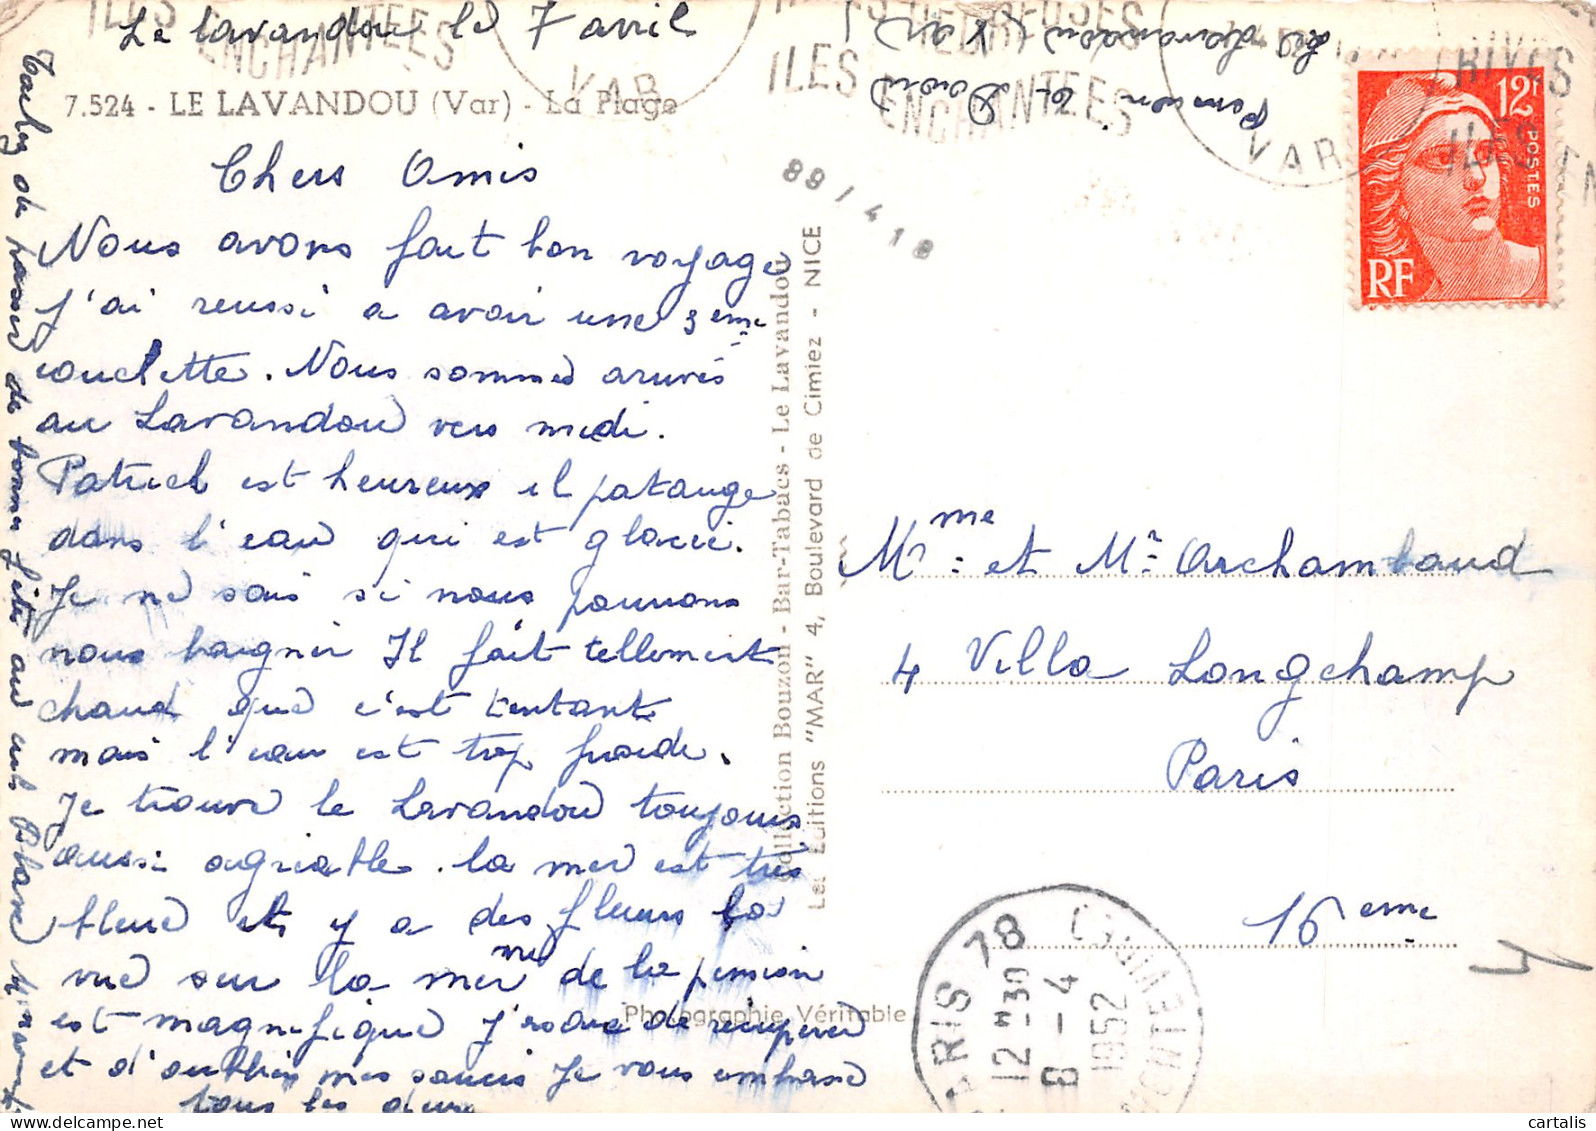 Le lavandou le 7 avril
7.524 - LE LAVANDOU (Var) - La Plage
Chers Amis
Nous avons fait bon voyage
J'ai reussi a avoir une 3eme
couchette. Nous sommes arrivés
au Lavandou vers midi.
Patrick est heureux il patauge
dans l'eau qui est glacée.
Je ne sais si nous pourrons
nous baigner Il fait tellement
chaud que c'est tentant
mais l'eau est trop froide.
Je trouve le Lavandou toujours
aussi agréable. la mer est très
bleue et y a des fleurs la
vue sur la mer de la pension
est magnifique J'essaie de récupérer
et d'oublier mes soucis Je vous embrasse
tous les deux
Tachez de passer de bonnes fêtes au
Pension
Le Lavandou (Var)
RIVES HEUREUSES
ILES ENCHANTEES
VAR
88/418
Collection Bouzon - Bar-Tabacs - Le Lavandou
Les Editions "MAR" 4, Boulevard de Cimiez - NICE
Photographie Véritable
12F
POSTES
RF
Mme et Mr Archambaud
4 Villa Longchamp
Paris
16eme
PARIS 78
12H30
8-4
1952
4
cartalis
www.cartalis.com